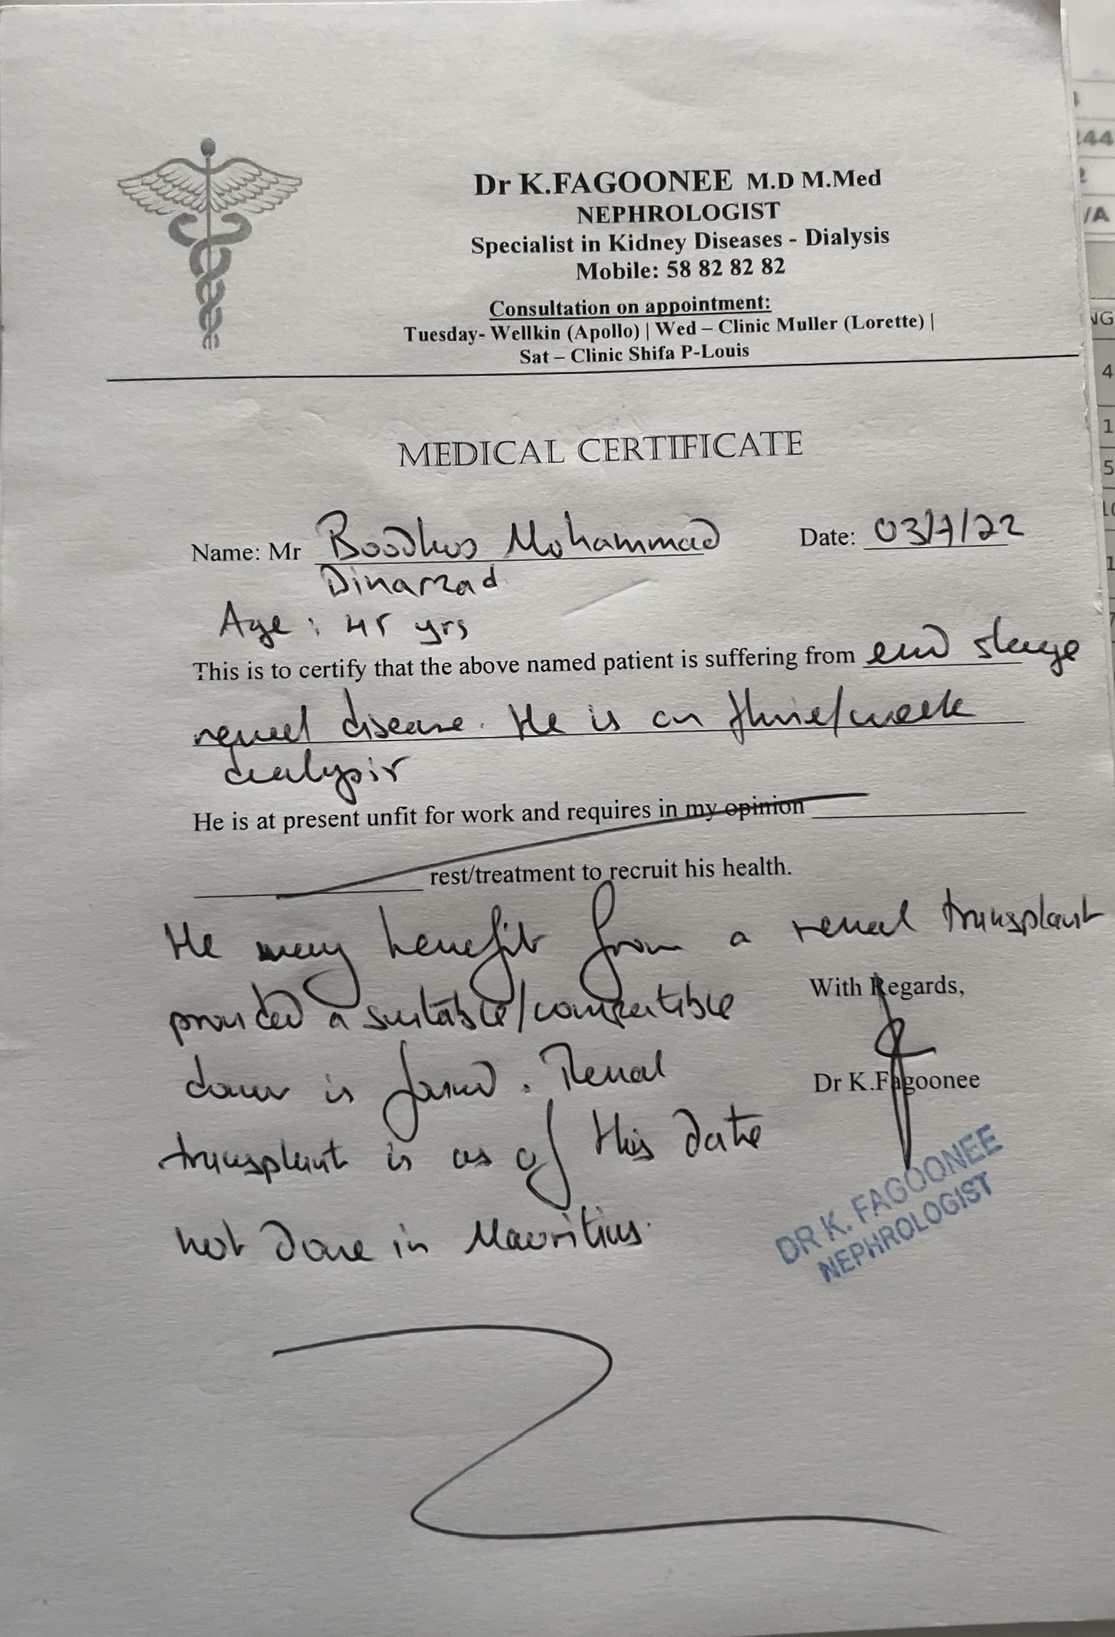 Dr K.FAGOONEE M.D M.Med
NEPHROLOGIST
Specialist in Kidney Diseases - Dialysis
Mobile: 58 82 82 82
Consultation on appointment:
Tuesday- Wellkin (Apollo) | Wed – Clinic Muller (Lorette) |
Sat – Clinic Shifa P-Louis
MEDICAL CERTIFICATE
Name: Mr Boodhoo Mohammad Date: 03/7/22
Dinarzad
Age: 45 yrs
This is to certify that the above named patient is suffering from end stage
renal disease. He is on thrice/week
dialysis
He is at present unfit for work and requires in my opinion
rest/treatment to recruit his health.
He may benefit from a renal transplant
provided a suitable/compatible
With Regards,
donor is found. Renal
Dr K.Fagoonee
transplant is as of this date
not done in Mauritius.
DR K. FAGOONEE
NEPHROLOGIST